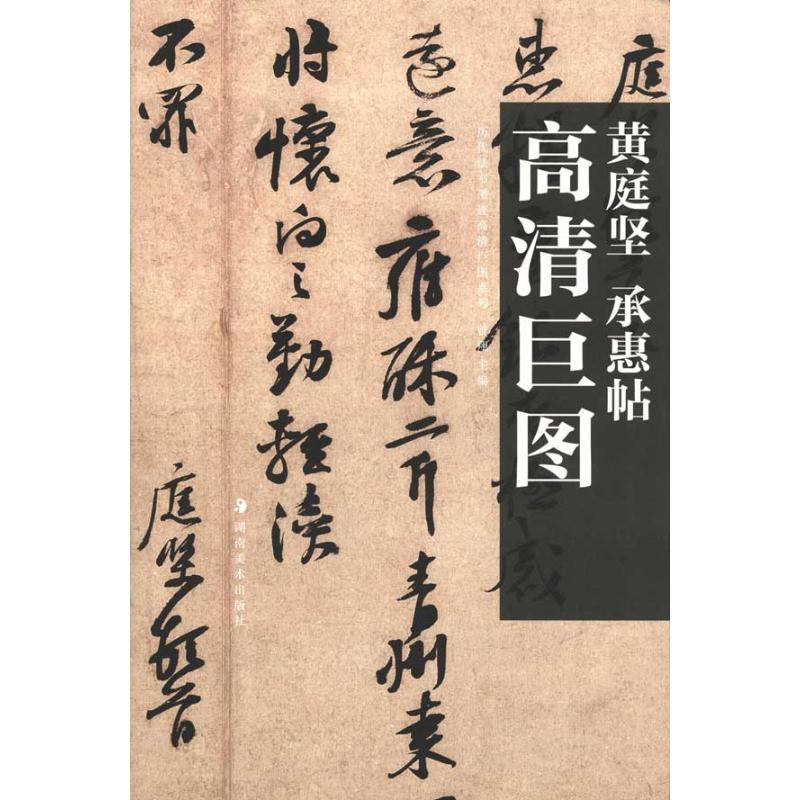 黄庭坚 承惠帖
高清巨图
历代法书墨迹高清巨图系列 主编
庭
惠
遠意雍酥二斤青州棗
将懷向之勤輕瀆
湖南美术出版社
不罪
庭堅頓首